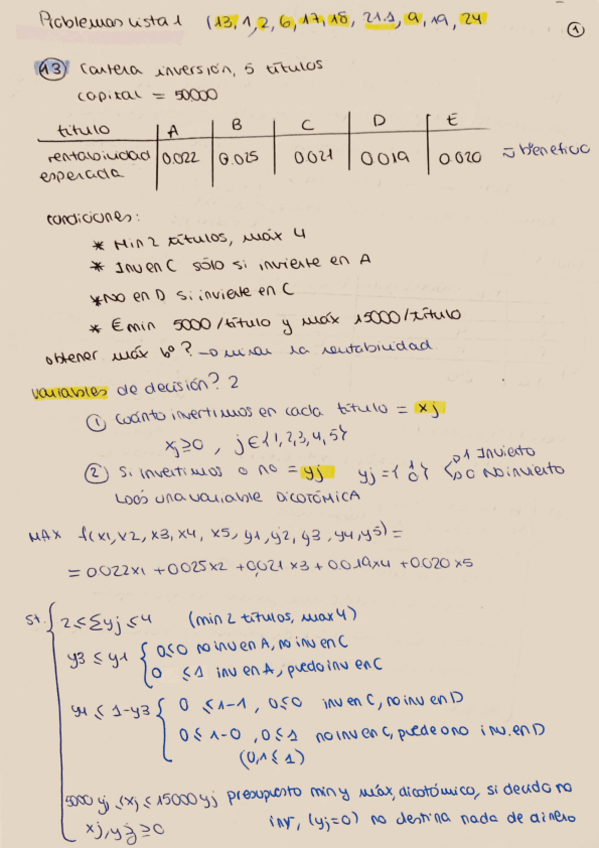 Problemas lista 1 (13, 1, 2, 6, 17, 18, 21.1, 9, 19, 24
1
13) Cartera inversión, 5 títulos
capital = 50000
título A B C D E
rentabilidad esperada 0.022 0.025 0.021 0.019 0.020 = beneficio
condiciones:
* Min 2 títulos, máx 4
* Inv en C sólo si invierte en A
* No en D si invierte en C
* € min 5000/título y máx 15000/título
obtener máx bº? → mirar la rentabilidad
variables de decisión? 2
① Cuánto invertimos en cada título = xj
xj ≥ 0, j ∈ {1, 2, 3, 4, 5}
② Si invertimos o no = yj yj = { 1 0 } → 1 Invierto → 0 No invierto
↳ es una variable DICOTÓMICA
MAX f(x1, x2, x3, x4, x5, y1, y2, y3, y4, y5) =
= 0.022x1 + 0.025x2 + 0.021x3 + 0.019x4 + 0.020x5
st. 2 ≤ Σyj ≤ 4 (min 2 títulos, max 4)
y3 ≤ y1 { 0 ≤ 0 no inv en A, no inv en C
0 ≤ 1 inv en A, puedo inv en C
y4 ≤ 1-y3 { 0 ≤ 1-1, 0 ≤ 0 inv en C, no inv en D
0 ≤ 1-0, 0 ≤ 1 no inv en C, puede o no inv. en D
(0,1 ≤ 1)
5000 yj ≤ xj ≤ 15000 yj presupuesto min y máx, dicotómico, si decido no
xj, yj ≥ 0 inv, (yj=0) no destina nada de dinero